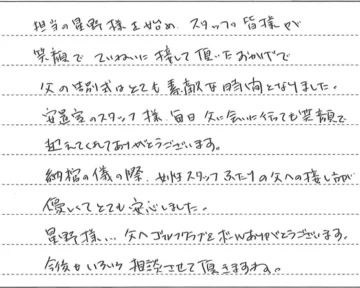 担当の星野様を始め スタッフの皆様が
笑顔で ていねいに 接して頂いたおかげで
父の告別式はとても 素敵な時間となりました。
安置室のスタッフ様、毎日 父に会いに行っても笑顔で
迎えてくれてありがとうございます。
納棺の儀の際、女性スタッフふたりの父への接し方が
優しくてとても安心しました。
星野様… 父へゴルフクラブとボールありがとうございます。
今後もいろいろ 相談させて頂きますね。